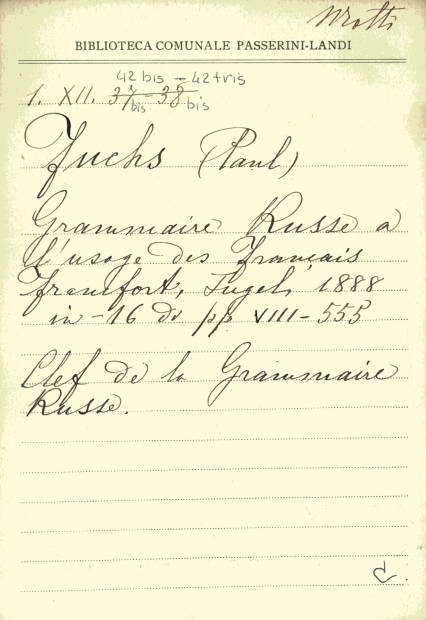 Mrotti
BIBLIOTECA COMUNALE PASSERINI-LANDI
42 bis - 42 tris
1. XII. 37 bis - 38 bis
Fuchs (Paul)
Grammaire Russe a
l'usage des Français
Francfort, Jugel, 1888
in-16 di pp VIII-555
Clef de la Grammaire
Russe.